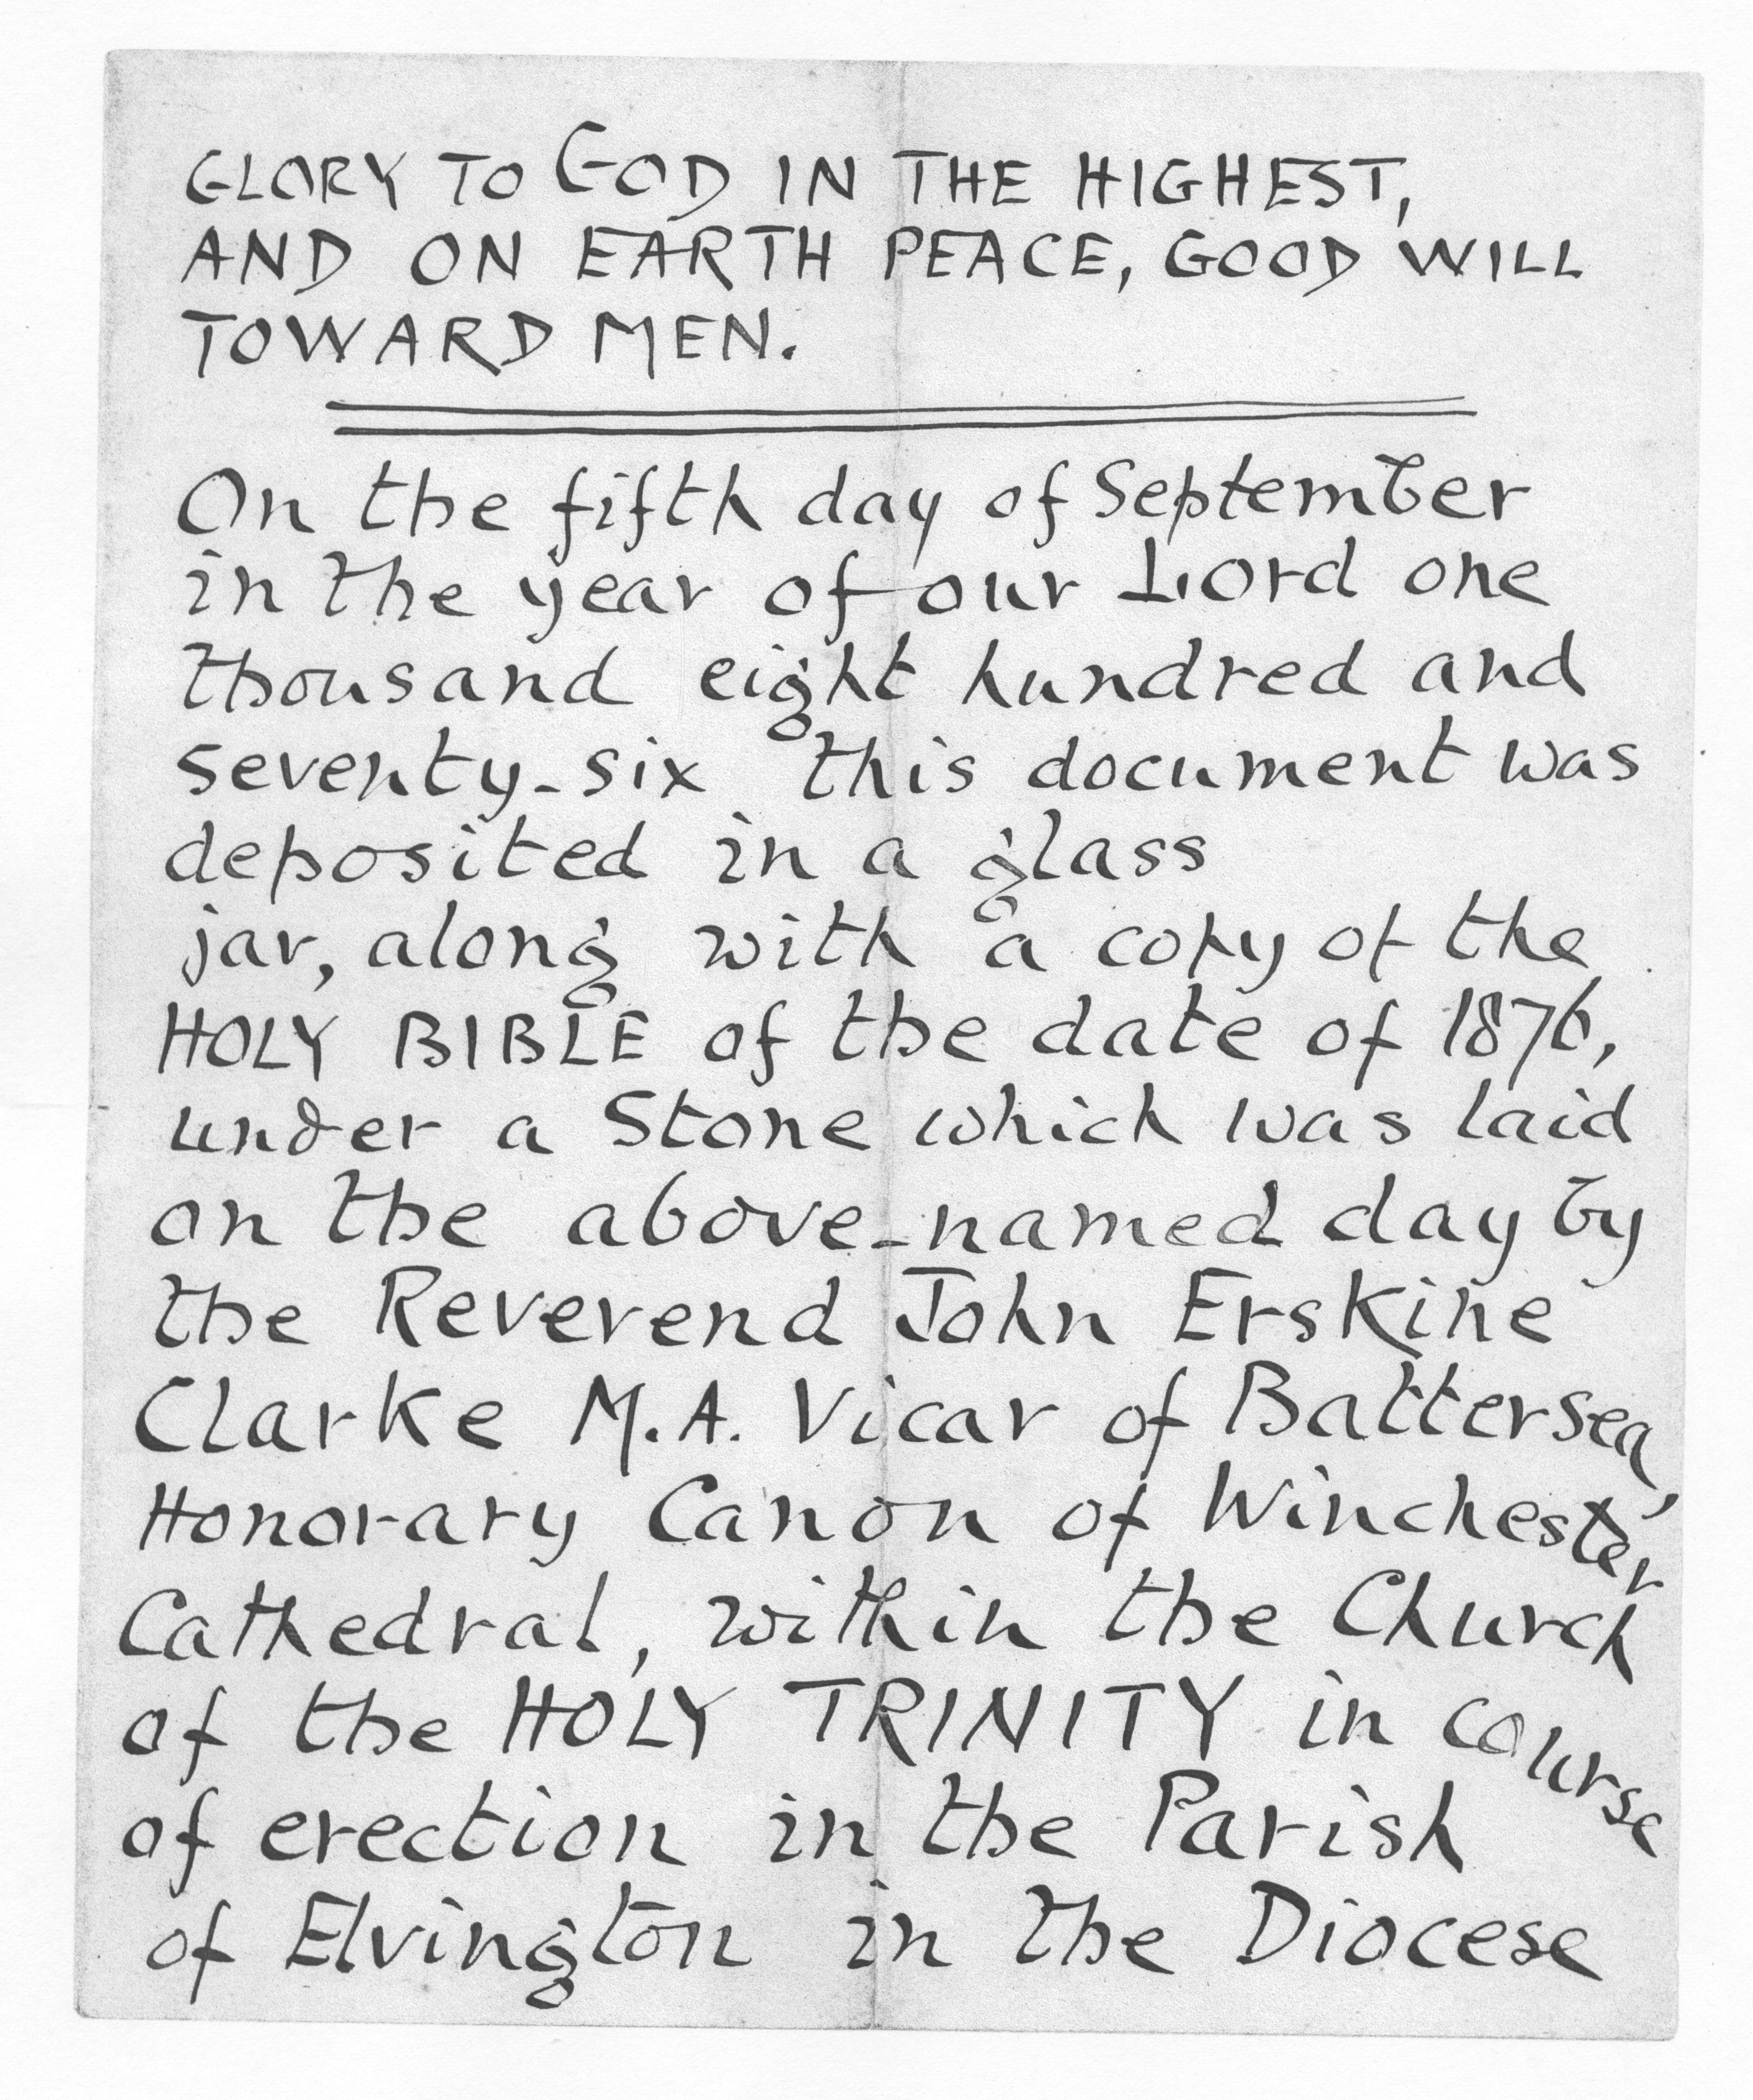 GLORY TO GOD IN THE HIGHEST,
AND ON EARTH PEACE, GOOD WILL
TOWARD MEN.
On the fifth day of September
in the year of our Lord one
thousand eight hundred and
seventy-six this document was
deposited in a glass
jar, along with a copy of the
HOLY BIBLE of the date of 1876,
under a Stone which was laid
on the above-named day by
the Reverend John Erskine
Clarke M.A. Vicar of Battersea,
Honorary Canon of Winchester
Cathedral, within the Church
of the HOLY TRINITY in course
of erection in the Parish
of Elvington in the Diocese